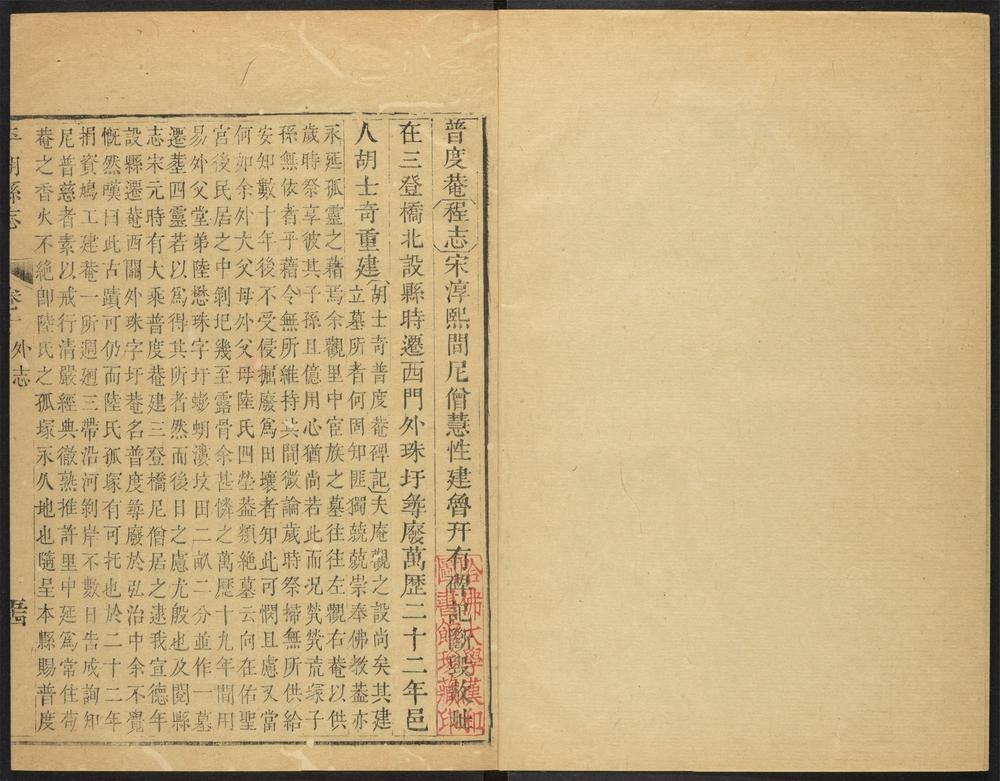 普度菴程志宋淳熙間尼僧慧性建魯幵有碑記斷毀故址
在三登橋北設縣時遷西門外珠圩尋廢萬歷二十二年邑
人胡士奇重建
胡士奇普度菴碑記夫庵觀之設尚矣其建
立墓所者何固知匪獨兢兢崇奉佛教葢亦
永延孤靈之藉焉余觀里中宦族之墓往往左觀右菴以供
歲時祭享彼其子孫且億用心猶尚若此而况煢煢荒塚子
孫無依者乎藉令無所維持其間微論歲時祭掃無所供給
安知數十年後不受侵掘廢爲田壤者知此可憫且慮又當
何如余外大父母外父母陸氏四塋葢類絶墓云向在佑聖
宮後民居之中剝圯幾至露骨余甚憐之萬歷十九年間用
易外父堂弟陸懋珠字圩蟛蚏漊坟田二畝二分並作一墓
遷塟四靈若以爲得其所者然而後日之慮尤殷也及閱縣
志宋元時有大乘普度菴建三登橋尼僧居之逮我宣德年
設縣遷菴西關外珠字圩菴名普度尋廢於弘治中余不覺
慨然嘆曰此古蹟可仍而陸氏孤塚有可托也於二十二年
捐資鳩工建菴一所週廻三帶沿河剝岸不數日告成詢知
尼普慈者素以戒行清嚴經典徹熟推許里中延爲常住茍
菴之香火不絶卽陸氏之孤塚永久地也隨呈本縣賜普度
平湖縣志
外志
哈佛大學漢和
圖書館珍藏印